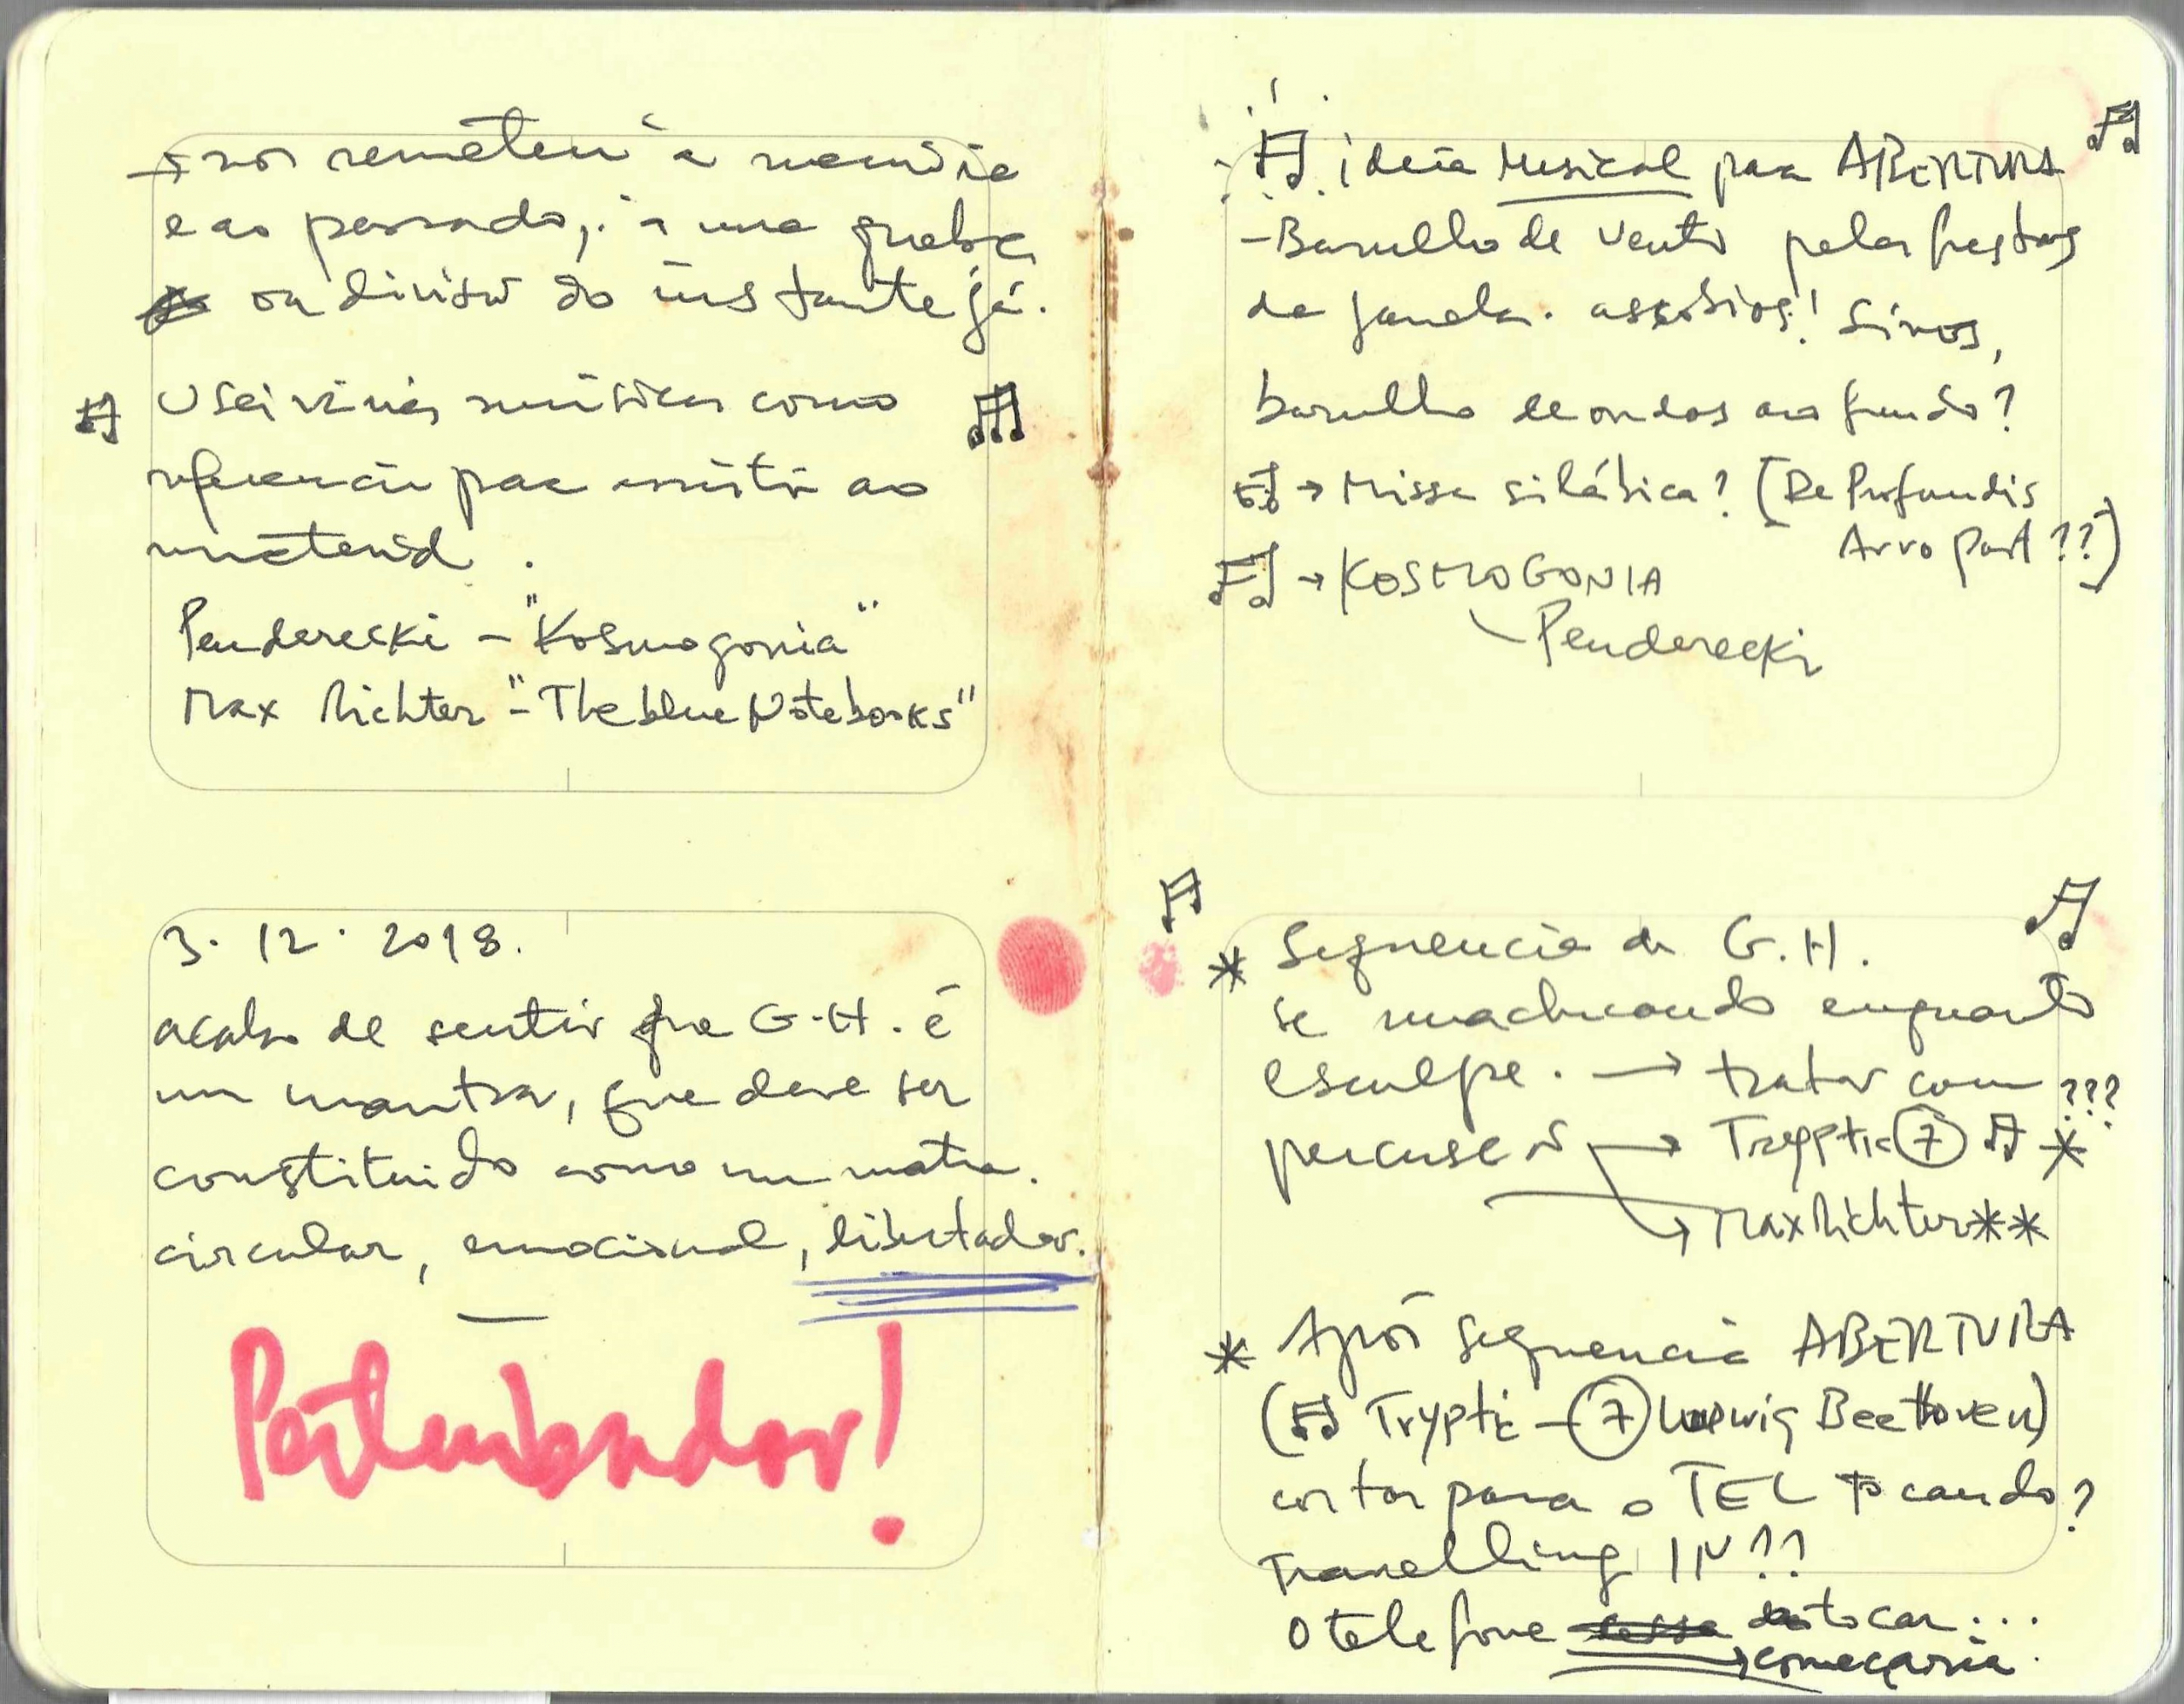 → nos remetem à memória
e ao passado, à uma quebra
ou divisão do instante já.
Usei várias músicas como
referência para assistir ao
material.
Penderecki – "Kosmogonia"
Max Richter "– The blue Notebooks"
3. 12. 2018.
acabo de sentir que G.H. é
um mantra, que deve ser
constituido como um
circular, emocional, libertador.
Perturbador!
ideia Musical para ABERTURA
– Barulho de vento pelas frestas
da janela. assobios! Sinos,
barulho de ondas ao fundo?
→ Missa silábica? (De Profundis
Arvo Part ??)
→ KOSMOGONIA
Penderecki
* Sequencia de G.H.
se machucando enquanto
esculpe. → tratar com ???
percusão → Tryptic 7 *
→ Max Richter **
* Após sequencia ABERTURA
(Tryptic – 7 Ludwig Beethoven)
cortar para o TEL tocando?
Travelling IN??
O telefone tocar...
→ começaria.